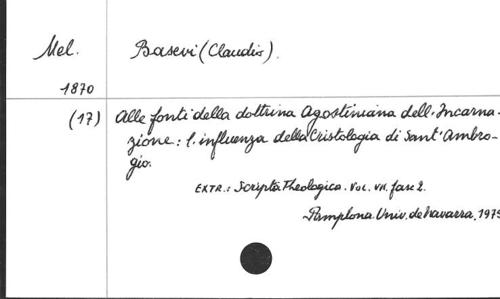 Mel. Basevi (Claudio).
1870
(17) Alle fonti della dottrina Agostiniana dell'Incarna-
zione: l'influenza della Cristologia di Sant'Ambro-
gio.
EXTR.: Scripta Theologica. Vol. VII. fasc 2.
Pamplona. Univ. de Navarra, 1975